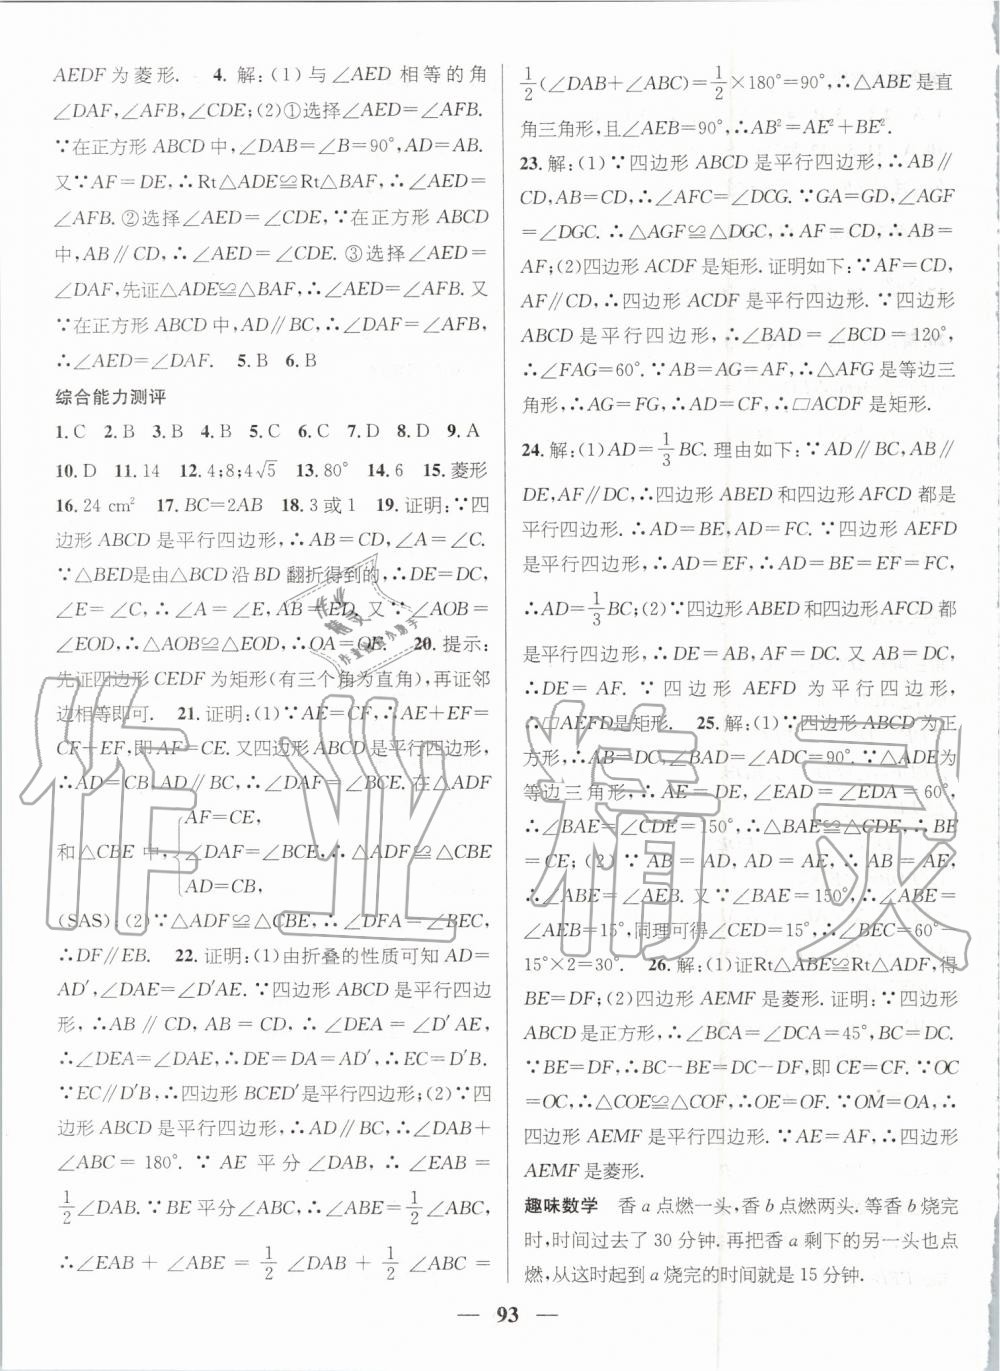 AEDF为菱形. 4. 解:(1)与∠AED相等的角
∠DAF,∠AFB,∠CDE;(2)①选择∠AED=∠AFB.
∵在正方形ABCD中,∠DAB=∠B=90°,AD=AB.
又∵AF=DE,∴Rt△ADE≌Rt△BAF,∴∠AED=
∠AFB. ②选择∠AED=∠CDE,∵在正方形ABCD
中,AB∥CD,∴∠AED=∠CDE. ③选择∠AED=
∠DAF,先证△ADE≌△BAF,∴∠AED=∠AFB. 又
∵在正方形ABCD中,AD∥BC,∴∠DAF=∠AFB,
∴∠AED=∠DAF. 5. B 6. B
综合能力测评
1. C 2. B 3. B 4. B 5. C 6. C 7. D 8. D 9. A
10. D 11. 14 12. 4;8;4√5 13. 80° 14. 6 15. 菱形
16. 24 cm² 17. BC=2AB 18. 3或1 19. 证明:∵四
边形ABCD是平行四边形,∴AB=CD,∠A=∠C.
∵△BED是由△BCD沿BD翻折得到的,∴DE=DC,
∠E=∠C,∴∠A=∠E,AB=ED. 又∵∠AOB=
∠EOD,∴△AOB≌△EOD,∴OA=OE. 20. 提示:
先证四边形CEDF为矩形(有三个角为直角),再证邻
边相等即可. 21. 证明:(1)∵AE=CF,∴AE+EF=
CF+EF,即AF=CE. 又四边形ABCD是平行四边形,
∴AD=CB,AD∥BC,∴∠DAF=∠BCE. 在△ADF
和△CBE中,{AF=CE,
∠DAF=∠BCE,∴△ADF≌△CBE
AD=CB,
(SAS);(2)∵△ADF≌△CBE,∴∠DFA=∠BEC,
∴DF∥EB. 22. 证明:(1)由折叠的性质可知AD=
AD′,∠DAE=∠D′AE. ∵四边形ABCD是平行四边
形,∴AB∥CD,AB=CD,∴∠DEA=∠D′AE,
∴∠DEA=∠DAE,∴DE=DA=AD′,∴EC=D′B.
∵EC∥D′B,∴四边形BCED′是平行四边形;(2)∵四
边形ABCD是平行四边形,∴AD∥BC,∴∠DAB+
∠ABC=180°. ∵AE平分∠DAB,∴∠EAB=
1/2∠DAB. ∵BE平分∠ABC,∴∠ABE=1/2∠ABC,
∴∠EAB+∠ABE=1/2∠DAB+1/2∠ABC=
1/2(∠DAB+∠ABC)=1/2×180°=90°,∴△ABE是直
角三角形,且∠AEB=90°,∴AB²=AE²+BE².
23. 解:(1)∵四边形ABCD是平行四边形,∴AB∥
CD,AB=CD,∴∠AFC=∠DCG. ∵GA=GD,∠AGF
=∠DGC. ∴△AGF≌△DGC,∴AF=CD,∴AB=
AF;(2)四边形ACDF是矩形. 证明如下:∵AF=CD,
AF∥CD,∴四边形ACDF是平行四边形. ∵四边形
ABCD是平行四边形,∴∠BAD=∠BCD=120°,
∴∠FAG=60°. ∵AB=AG=AF,∴△AFG是等边三
角形,∴AG=FG,∴AD=CF,∴▱ACDF是矩形.
24. 解:(1)AD=1/3BC. 理由如下:∵AD∥BC,AB∥
DE,AF∥DC,∴四边形ABED和四边形AFCD都是
平行四边形. ∴AD=BE,AD=FC. ∵四边形AEFD
是平行四边形,∴AD=EF,∴AD=BE=EF=FC,
∴AD=1/3BC;(2)∵四边形ABED和四边形AFCD都
是平行四边形,∴DE=AB,AF=DC. ∵AB=DC,
∴DE=AF. ∵四边形AEFD为平行四边形,
∴▱AEFD是矩形. 25. 解:(1)∵四边形ABCD为正
方形,∴AB=DC,∠BAD=∠ADC=90°. ∵△ADE为
等边三角形,∴AE=DE,∠EAD=∠EDA=60°,
∴∠BAE=∠CDE=150°,∴△BAE≌△CDE,∴BE
=CE;(2)∵AB=AD,AD=AE,∴AB=AE,
∴∠ABE=∠AEB. 又∵∠BAE=150°,∴∠ABE=
∠AEB=15°,同理可得∠CED=15°,∴∠BEC=60°-
15°×2=30°. 26. 解:(1)证Rt△ABE≌Rt△ADF,得
BE=DF;(2)四边形AEMF是菱形. 证明:∵四边形
ABCD是正方形,∴∠BCA=∠DCA=45°,BC=DC.
∵BE=DF,∴BC-BE=DC-DF,即CE=CF. ∵OC
=OC,∴△COE≌△COF,∴OE=OF. ∵OM=OA,∴
四边形AEMF是平行四边形. ∵AE=AF,∴四边形
AEMF是菱形.
趣味数学 香a点燃一头,香b点燃两头. 等香b烧完
时,时间过去了30分钟. 再把香a剩下的另一头也点
燃,从这时起到a烧完的时间就是15分钟.
— 93 —
作业精灵